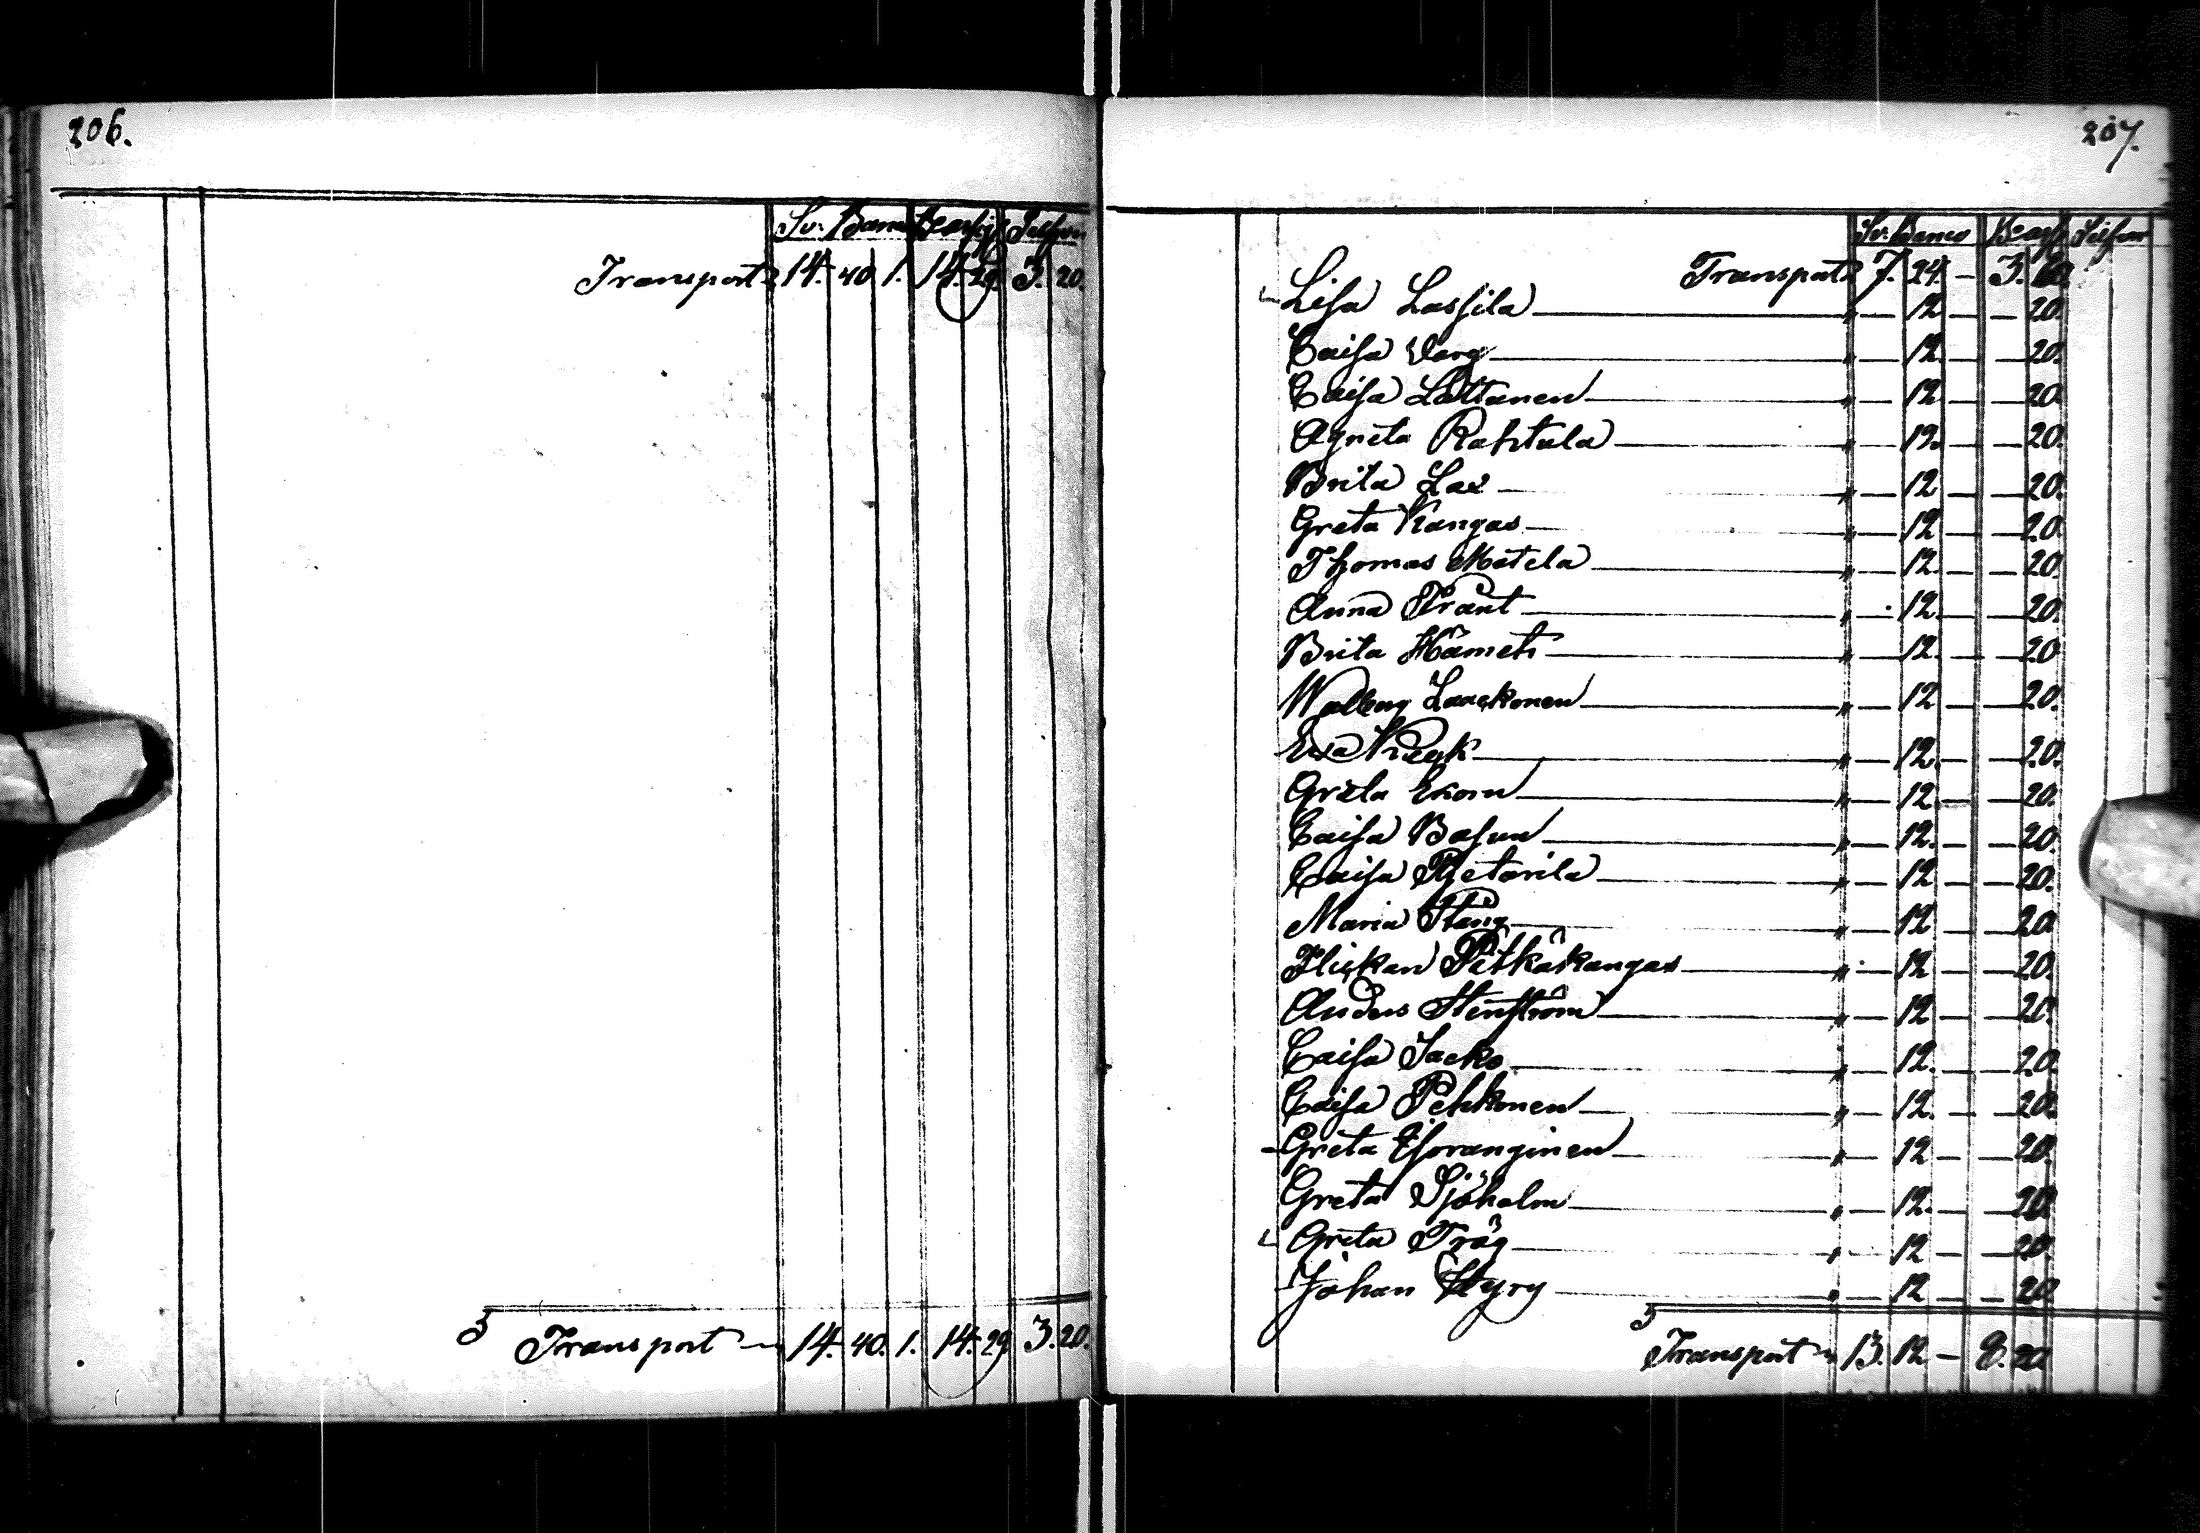 206.
Sv. Banco Ryss. Silfver
Transport 14. 40 1. 14. 29. 3. 20.
Transport 14. 40. 1. 14. 29 3. 20.
207.
Sv. Banco Silfver
Transport 7. 24. — 3. 60.
Lisa Lassila " — 12 — — 20.
Caisa Varg " — 12 — — 20.
Caisa Lattanen " — 12 — — 20
Agneta Rahtula " — 12. — — 20.
Brita Lax " — 12 — — 20.
Greta Kangas " — 12 — — 20.
Thomas Matela " — 12. — — 20.
Anna Prant " — 12. — — 20.
Brita Hämet " — 12. — — 20
Walborg Laackonen " — 12 — — 20.
Exa " — 12. — — 20.
Greta Ekorn " — 12. — — 20.
Caisa Basun " — 12. — — 20.
Caisa Pjetarila " — 12 — — 20.
Maria Stång " — 12 — — 20
Flickan Pitkäkangas " — 12 — — 20.
Anders Stenström " — 12 — — 20.
Caisa Jacko " — 12. — — 20.
Caisa Pehkonen " — 12. — — 20.
Greta Isoranginen " — 12 — — 20.
Greta Sjöholm " — 12. — — 20.
Greta Tråg " — 12 — — 20.
Johan Hyry " 12 — — 20
Transport 13. 12 — 8. 20